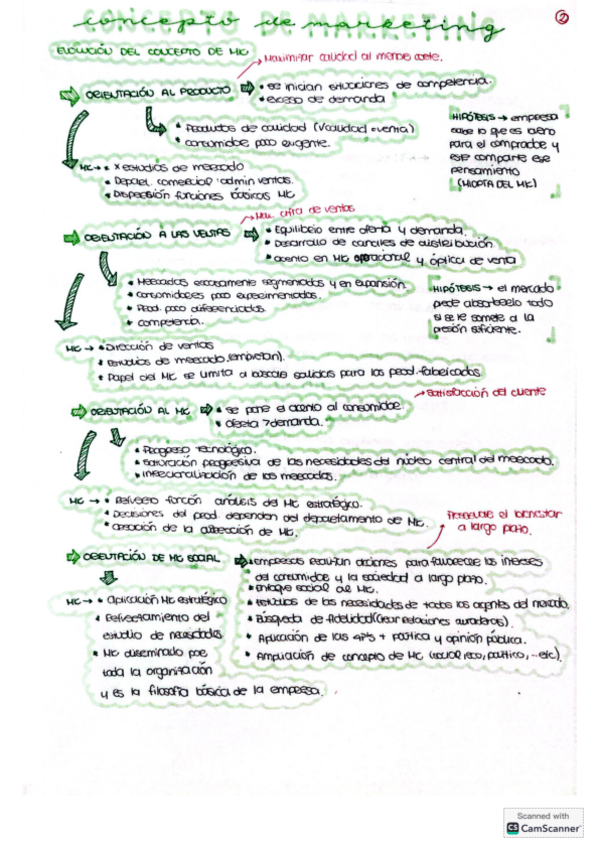 CONCEPTO DE MARKETING
concepto de marketing
2
EVOLUCIÓN DEL CONCEPTO DE MK
→ Maximizar calidad al menor coste.
ORIENTACIÓN AL PRODUCTO
• Se inician situaciones de competencia.
• exceso de demanda
• Productos de calidad (↓calidad = venta)
• consumidor poco exigente.
HIPÓTESIS → empresa
sabe lo que es bueno
para el comprador y
este comparte ese
pensamiento
(MIOPÍA DEL MK)
MK → • x estudios de mercado
• Depart. comercial: admin ventas.
• Dispersión funciones básicas MK
→ Max. cifra de ventas
ORIENTACIÓN A LAS VENTAS
• Equilibrio entre oferta y demanda.
• Desarrollo de canales de distribución
• acento en MK operacional y óptica de venta
• Mercados escasamente segmentados y en expansión.
• consumidores poco experimentados.
• Prod. poco diferenciados.
• competencia.
HIPÓTESIS → el mercado
puede absorberlo todo
si se le somete a la
presión suficiente.
MK → • Dirección de ventas
• Estudios de mercado (empiezan).
• Papel del MK se limita a buscar salidas para los prod. fabricados
→ Satisfacción del cliente
ORIENTACIÓN AL MK
• se pone el acento al consumidor.
• oferta > demanda.
• Progreso tecnológico.
• Saturación progresiva de las necesidades del núcleo central del mercado.
• internacionalización de los mercados.
MK → • Refuerzo función análisis del MK estratégico.
• Decisiones del prod. dependen del departamento de MK.
• creación de la dirección de MK.
Promover el bienestar
a largo plazo.
ORIENTACIÓN DE MK SOCIAL
• empresas realizan acciones para favorecer los intereses
del consumidor y la sociedad a largo plazo.
• enfoque social al MK.
• estudios de las necesidades de todos los agentes del mercado.
• Búsqueda de fidelidad (crear relaciones duraderas).
• Aplicación de las 4P's + política y opinión pública.
• Ampliación de concepto de MK (social, eco, político, ...etc).
MK → • Aplicación MK estratégico
• Reforzamiento del
estudio de necesidades
• MK diseminado por
toda la organización
y es la filosofía básica de la empresa.
Scanned with
CS CamScanner